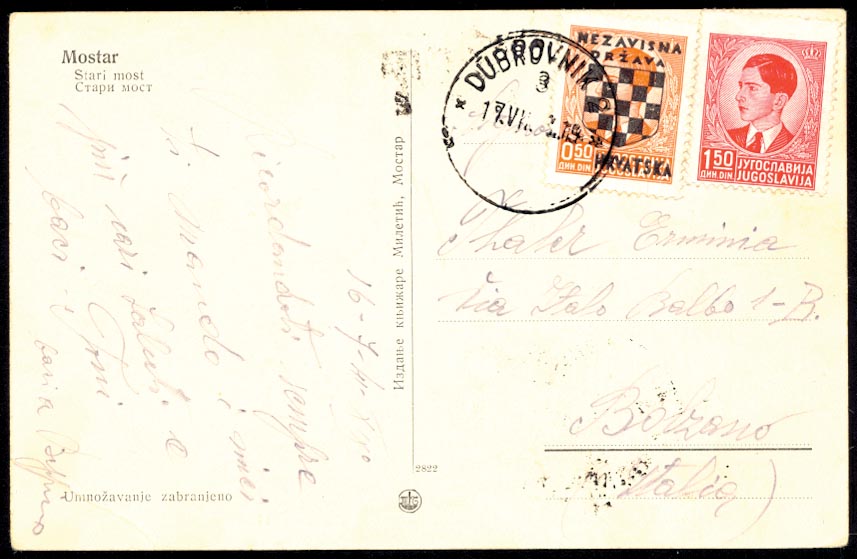 Mostar
Stari most
Стари мост
16-7-
Ricordandoti sempre
ti mando i miei
più cari saluti e
baci
Umnožavanje zabranjeno
Издање књижаре Милетић, Мостар
2822
DUBROVNIK
3
17.VII.
NEZAVISNA
DRŽAVA
HRVATSKA
0.50
ДИН. DIN.
JUGOSLAVIJA
1.50
ЈУГОСЛАВИЈА
ДИН. DIN.
JUGOSLAVIJA
Thaler Erminia
Via Italo Balbo 1-B.
Bolzano
(Italia)